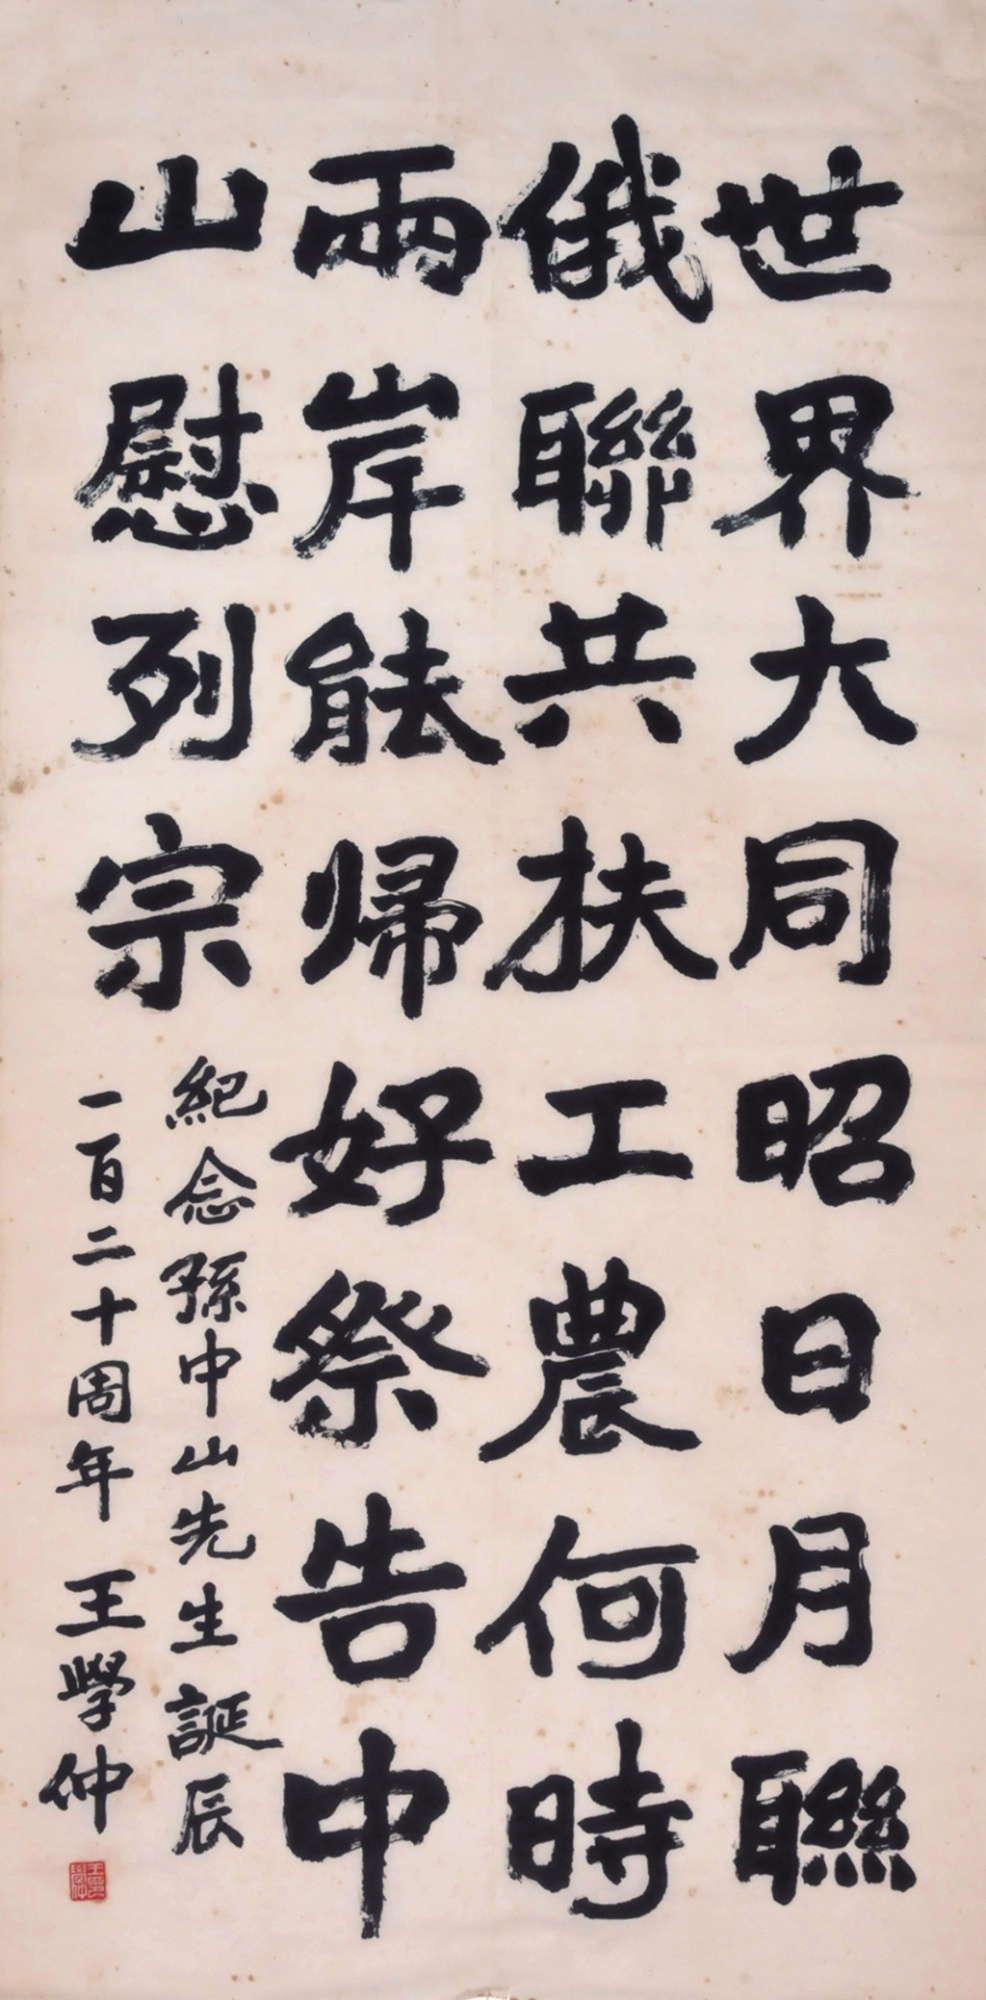 世界大同昭日月聯
俄聯共扶工農何時
兩岸能歸好祭告中
山慰列宗
紀念孫中山先生誕辰
一百二十周年 王學仲